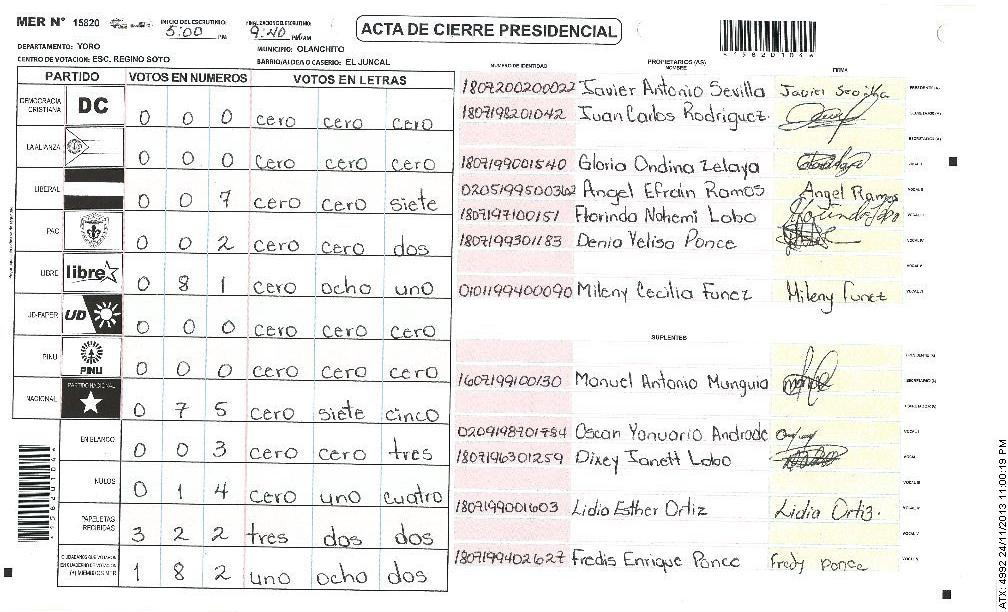 MER N° 15820
INICIO DEL ESCRUTINIO: 5:00 PM
FINALIZACION DEL ESCRUTINIO: 9:40 PM/AM
ACTA DE CIERRE PRESIDENCIAL
DEPARTAMENTO: YORO
MUNICIPIO: OLANCHITO
CENTRO DE VOTACION: ESC. REGINO SOTO
BARRIO/ALDEA O CASERIO: EL JUNCAL
PARTIDO VOTOS EN NUMEROS VOTOS EN LETRAS
DEMOCRACIA CRISTIANA DC 0 0 0 cero cero cero
LA ALIANZA 0 0 0 cero cero cero
LIBERAL 0 0 7 cero cero siete
PAC 0 0 2 cero cero dos
LIBRE libre 0 8 1 cero ocho uno
UD-FAPER UD 0 0 0 cero cero cero
PINU PINU 0 0 0 cero cero cero
NACIONAL PARTIDO NACIONAL 0 7 5 cero siete cinco
EN BLANCO 0 0 3 cero cero tres
NULOS 0 1 4 cero uno cuatro
PAPELETAS RECIBIDAS 3 2 2 tres dos dos
CIUDADANOS QUE VOTARON EN CUADERNO DE VOTACION (+) MIEMBROS MER 1 8 2 uno ocho dos
NUMERO DE IDENTIDAD PROPIETARIOS (AS) NOMBRE FIRMA
1807200200022 Javier Antonio Sevilla Javier Sevilla PRESIDENTE (A)
1807198201042 Juan Carlos Rodriguez. SECRETARIO (A)
1807199001540 Gloria Ondina Zelaya VOCAL I
0205199500362 Angel Efraín Ramos Angel Ramos VOCAL II
1807197100151 Florinda Nohemi Lobo
1807199301183 Denia Yelisa Ponce
0101199400090 Mileny Cecilia Funez Mileny Funez
SUPLENTES
1607199100130 Manuel Antonio Munguia SECRETARIO (A)
0209198701784 Oscar Yanuario Andrade VOCAL I
1807196301259 Dixey Janett Lobo VOCAL
1807199001603 Lidia Esther Ortiz Lidia Ortiz.
1807199402627 Fredis Enrique Ponce Fredy Ponce
ATX: 4992 24/11/2013 11:00:19 PM